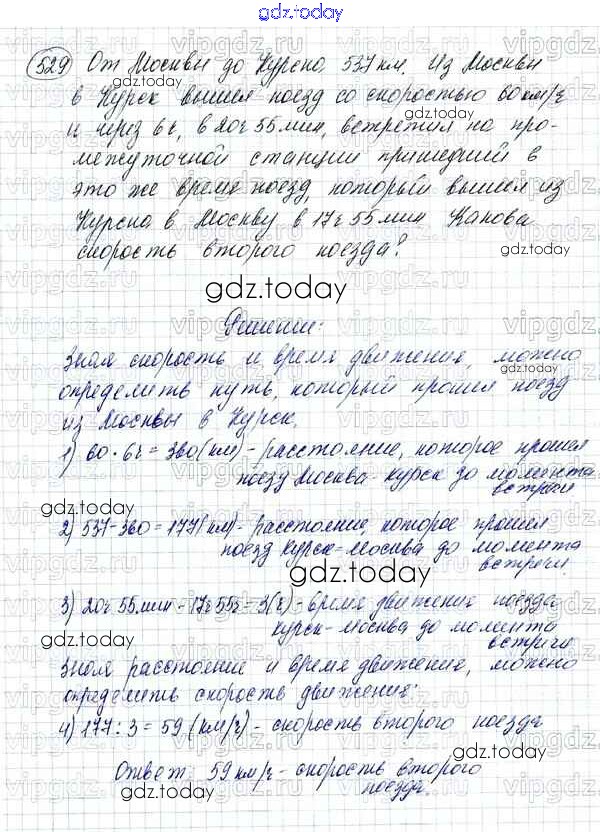 gdz.today
529 От Москвы до Курска 537 км. Из Москвы
gdz.today
в Курск вышел поезд со скоростью 60 км/ч
и через 6ч, в 20ч 55 мин, встретил на про-
межуточной станции пришедший в
это же время поезд, который вышел из
Курска в Москву в 17ч 55 мин Какова
скорость второго поезда?
gdz.today
gdz.today
Решение:
Зная скорость и время движения, можно
gdz.today
определить путь, который прошел поезд
из Москвы в Курск.
1) 60 · 6ч = 360 (км) - расстояние, которое прошел
поезд Москва - Курск до момента
встречи
gdz.today
2) 537 - 360 = 177 (км) - расстояние, которое прошел
поезд Курск - Москва до момента
встречи.
gdz.today
3) 20ч 55 мин - 17ч 55ч = 3 (ч) - время движение поезда
Курск - Москва до момента
встречи
gdz.today
Зная расстояние и время движение, можно
определить скорость движения:
4) 177 : 3 = 59 (км/ч) - скорость второго поезда
gdz.today
Ответ 59 км/ч - скорость второго
поезда.
gdz.today